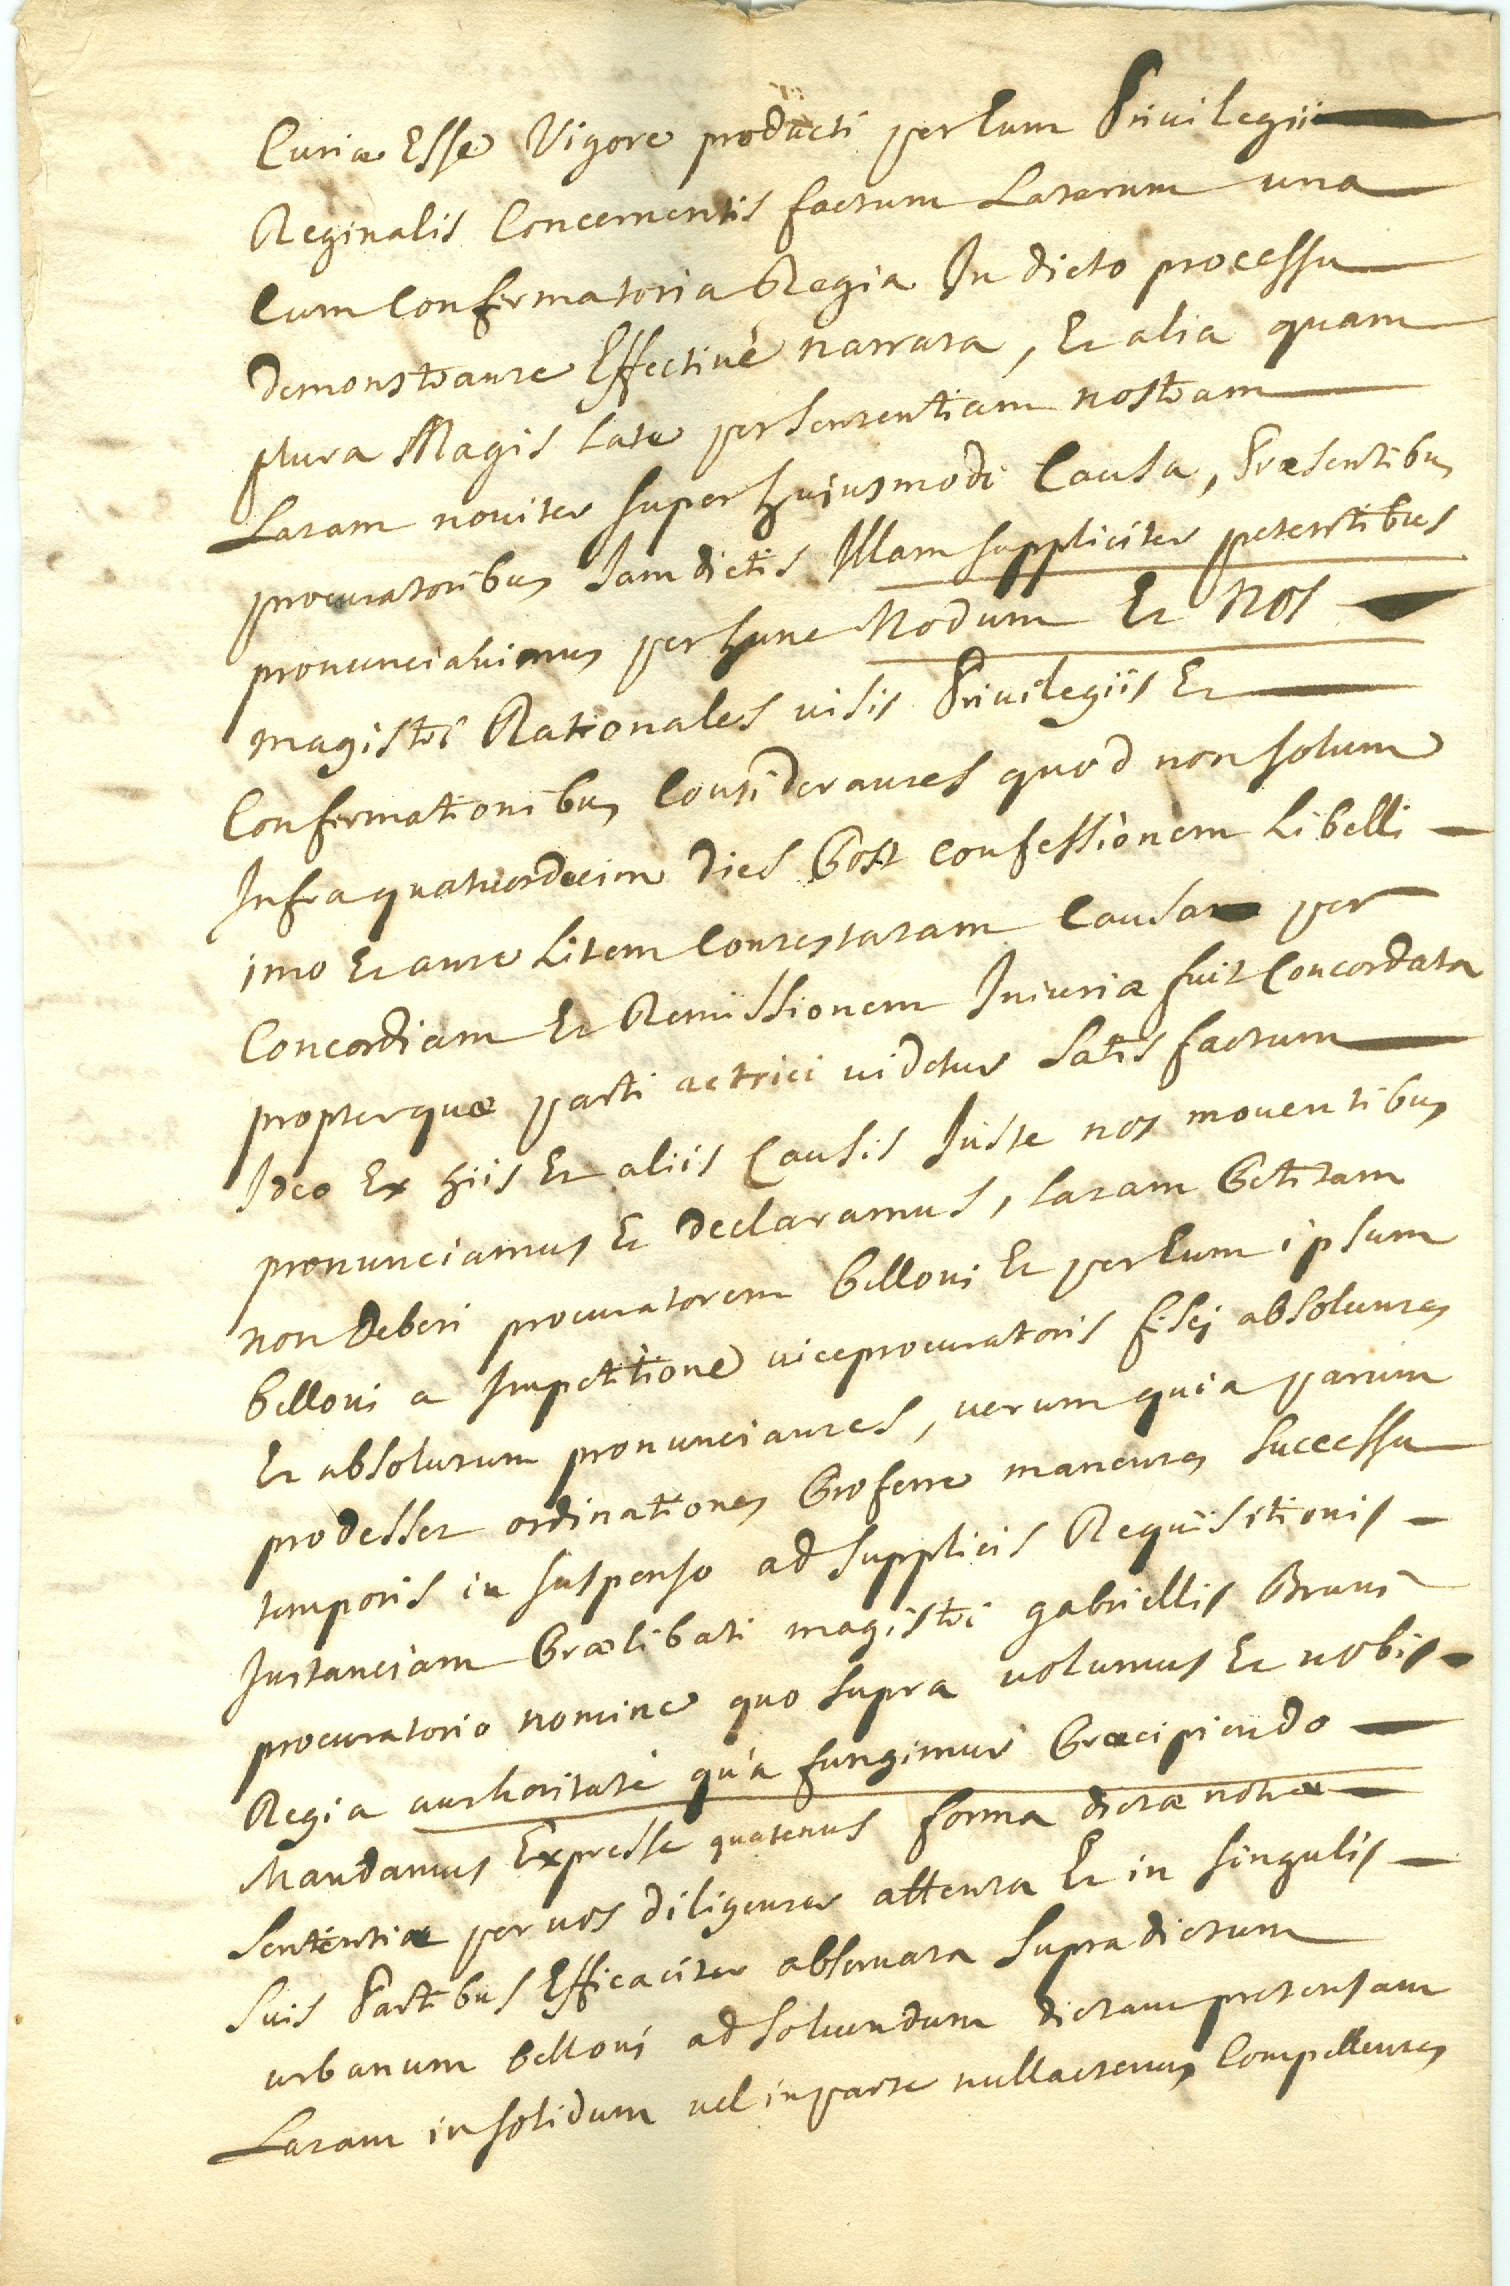 Curiæ Esse Vigore producti per Eum Privilegii
Reginalis Concernentis factum Latarum una
Cum Confirmatoria Regia In dicto processu
demonstrante Effective narrata, Et alia quam
plura Magis Late per Sententiam nostram
Latam noviter super hujusmodi Causa, Præsentibus
procuratoribus Jam dictis Illam suppliciter petentibus
pronunciavimus per hunc Modum Et Nos
magistri Rationales visis Privilegiis Et
Confirmationibus Considerantes quod non solum
Infra quatuordecim dies Post confessionem Libelli
imo Et ante Litem Contestatam Causa per
Concordiam Et Remissionem Iniuriæ fuit Concordata
propterquæ parti actrici videtur Satisfactum
Ideo Ex hiis Et aliis Causis Juste nos moventibus
pronunciamus Et declaramus, Latam Petitam
non deberi procuratorem Belloni Et per Eum ipsum
Belloni a Impetitione viceprocuratoris fisci absolventes
Et absolutum pronunciantes, verum quia parum
prodesset ordinationes Proferre manentes Successu
temporis in suspenso ad supplicis Requisitionis
Instanciam Prælibati magistri gabriellis Bruni
procuratorio nomine quo supra volumus Et vobis
Regia authoritate qua fungimur Præcipiendo
Mandamus Expresse quatenus forma dictæ notræ
Sententiæ per vos diligenter attenta Et in singulis
Suis Partibus Efficaciter observata Supradictum
urbanum Belloni ad Solvendum dictam pretensam
Latam in solidum vel in parte nullactenus Compellentes